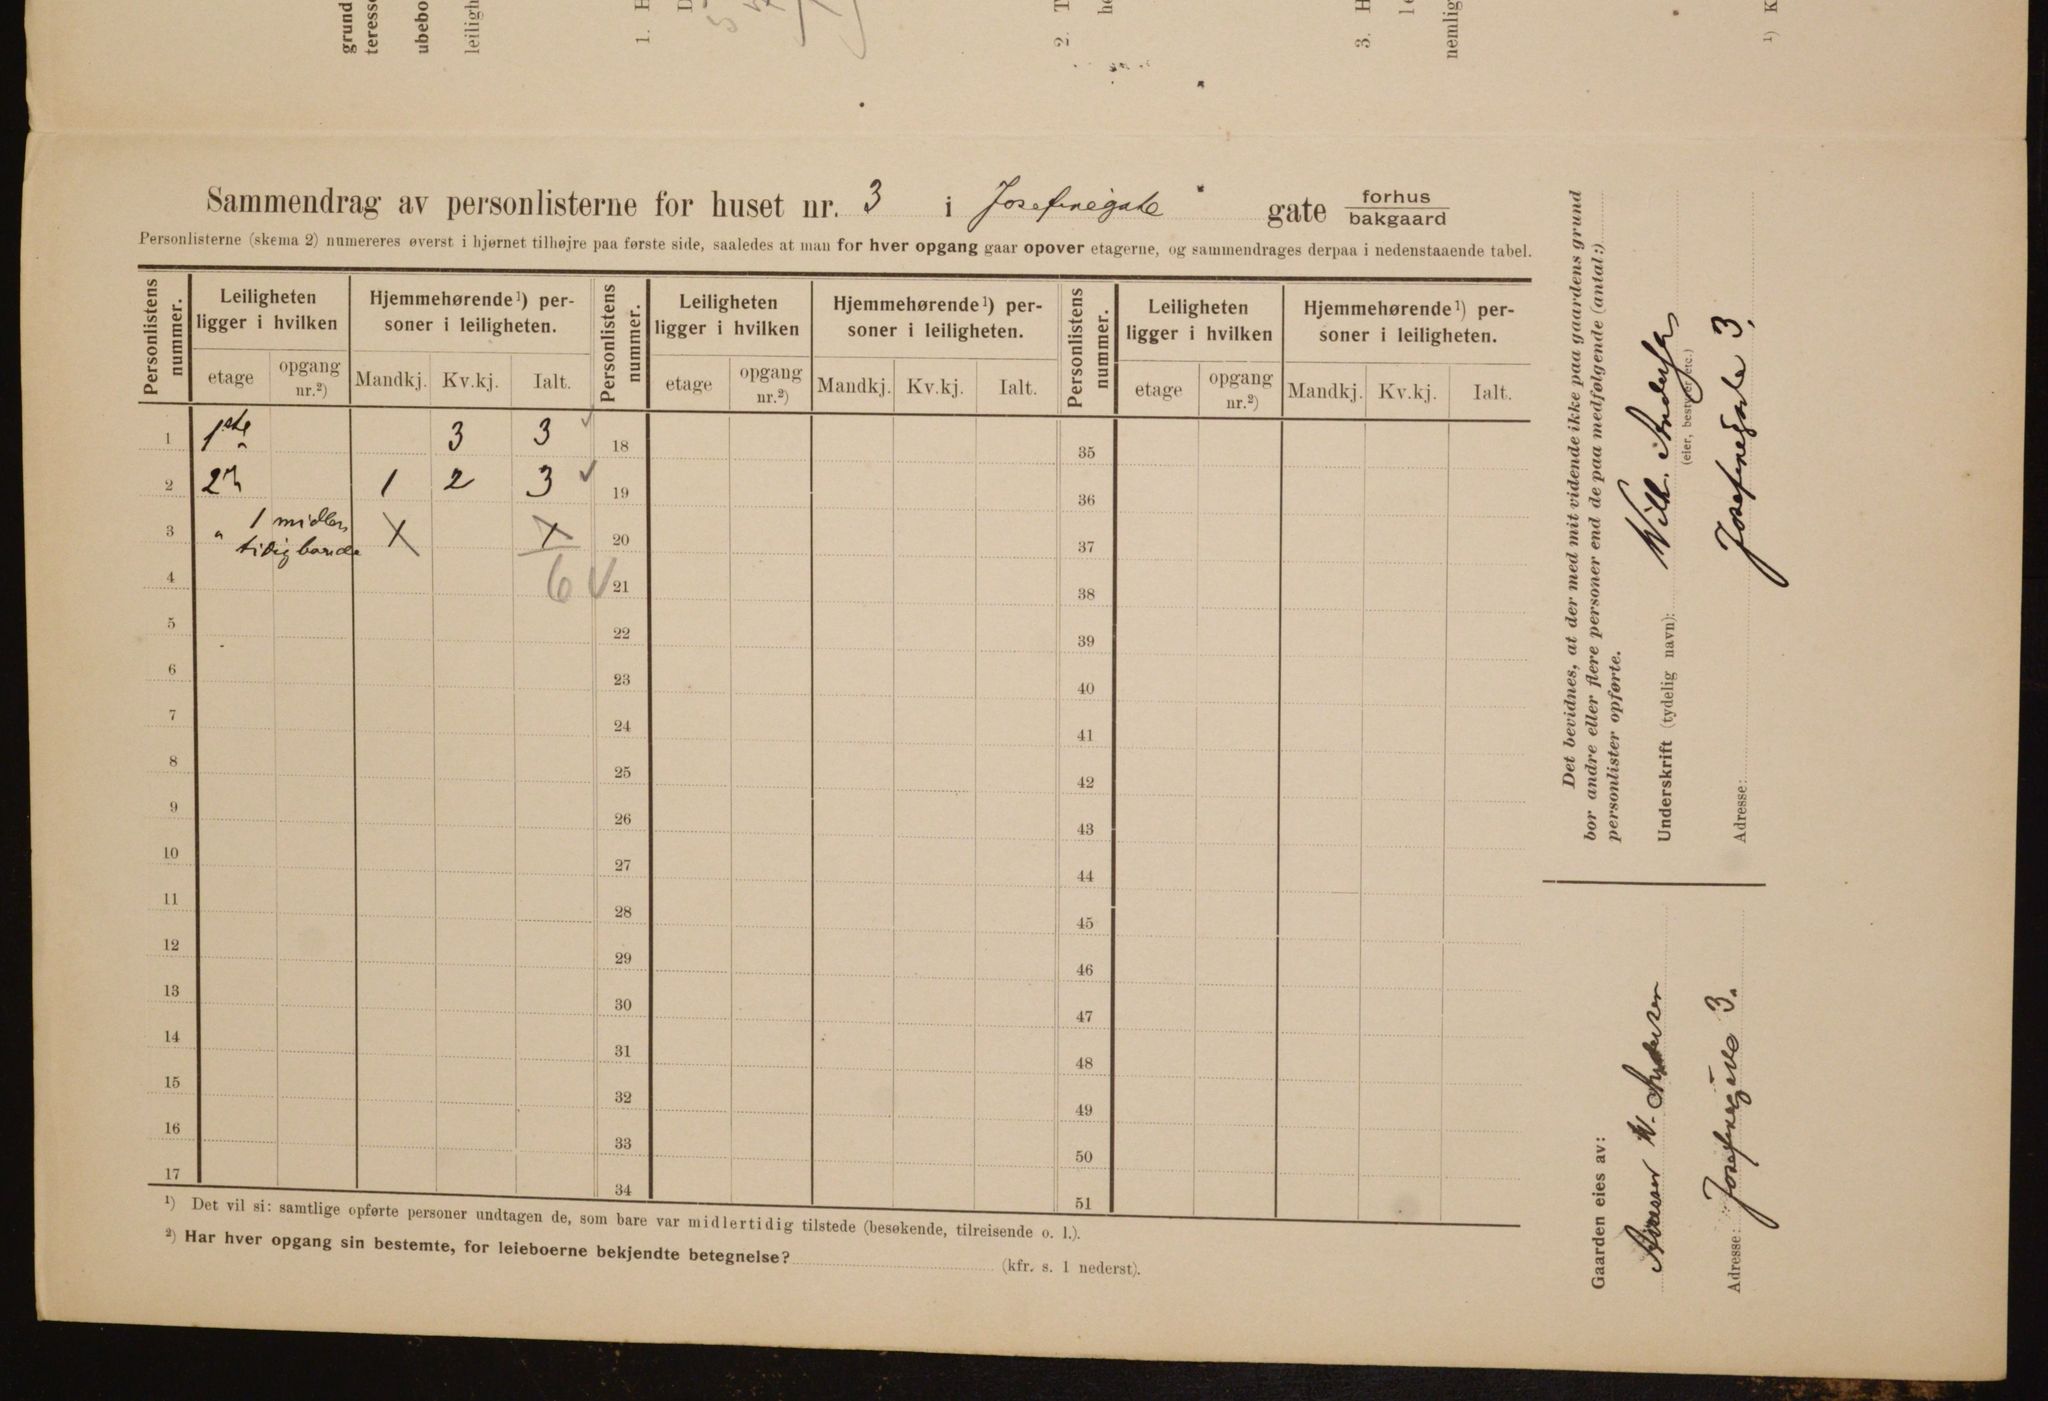 grund
teresse
ubebo
leiligh
1. H
D
2. T
he
3. H
le
nemlig
¹) K
Sammendrag av personlisterne for huset nr. 3 i Josefinegate gate forhus / bakgaard
Personlisterne (skema 2) numereres øverst i hjørnet tilhøjre paa første side, saaledes at man for hver opgang gaar opover etagerne, og sammendrages derpaa i nedenstaaende tabel.
Personlistens nummer. | Leiligheten ligger i hvilken | Hjemmehørende¹) personer i leiligheten. | Personlistens nummer. | Leiligheten ligger i hvilken | Hjemmehørende¹) personer i leiligheten. | Personlistens nummer. | Leiligheten ligger i hvilken | Hjemmehørende¹) personer i leiligheten.
etage | opgang nr.²) | Mandkj. | Kv.kj. | Ialt. | etage | opgang nr.²) | Mandkj. | Kv.kj. | Ialt. | etage | opgang nr.²) | Mandkj. | Kv.kj. | Ialt.
1 1ste 3 3 ✓ 18 35
2 2n 1 2 3 ✓ 19 36
3 " 1 midler- X X 20 37
tidig boende
4 6 ✓ 21 38
5 22 39
6 23 40
7 24 41
8 25 42
9 26 43
10 27 44
11 28 45
12 29 46
13 30 47
14 31 48
15 32 49
16 33 50
17 34 51
¹) Det vil si: samtlige opførte personer undtagen de, som bare var midlertidig tilstede (besøkende, tilreisende o. l.).
²) Har hver opgang sin bestemte, for leieboerne bekjendte betegnelse? (kfr. s. 1 nederst).
Det bevidnes, at der med mit vidende ikke paa gaardens grund
bor andre eller flere personer end de paa medfølgende (antal:)
personlister opførte.
Underskrift (tydelig navn): Wilh. Andersen
(eier, bestyrer etc.)
Adresse: Josefinegade 3.
Gaarden eies av:
W. Andersen
Adresse: Josefinegade 3.